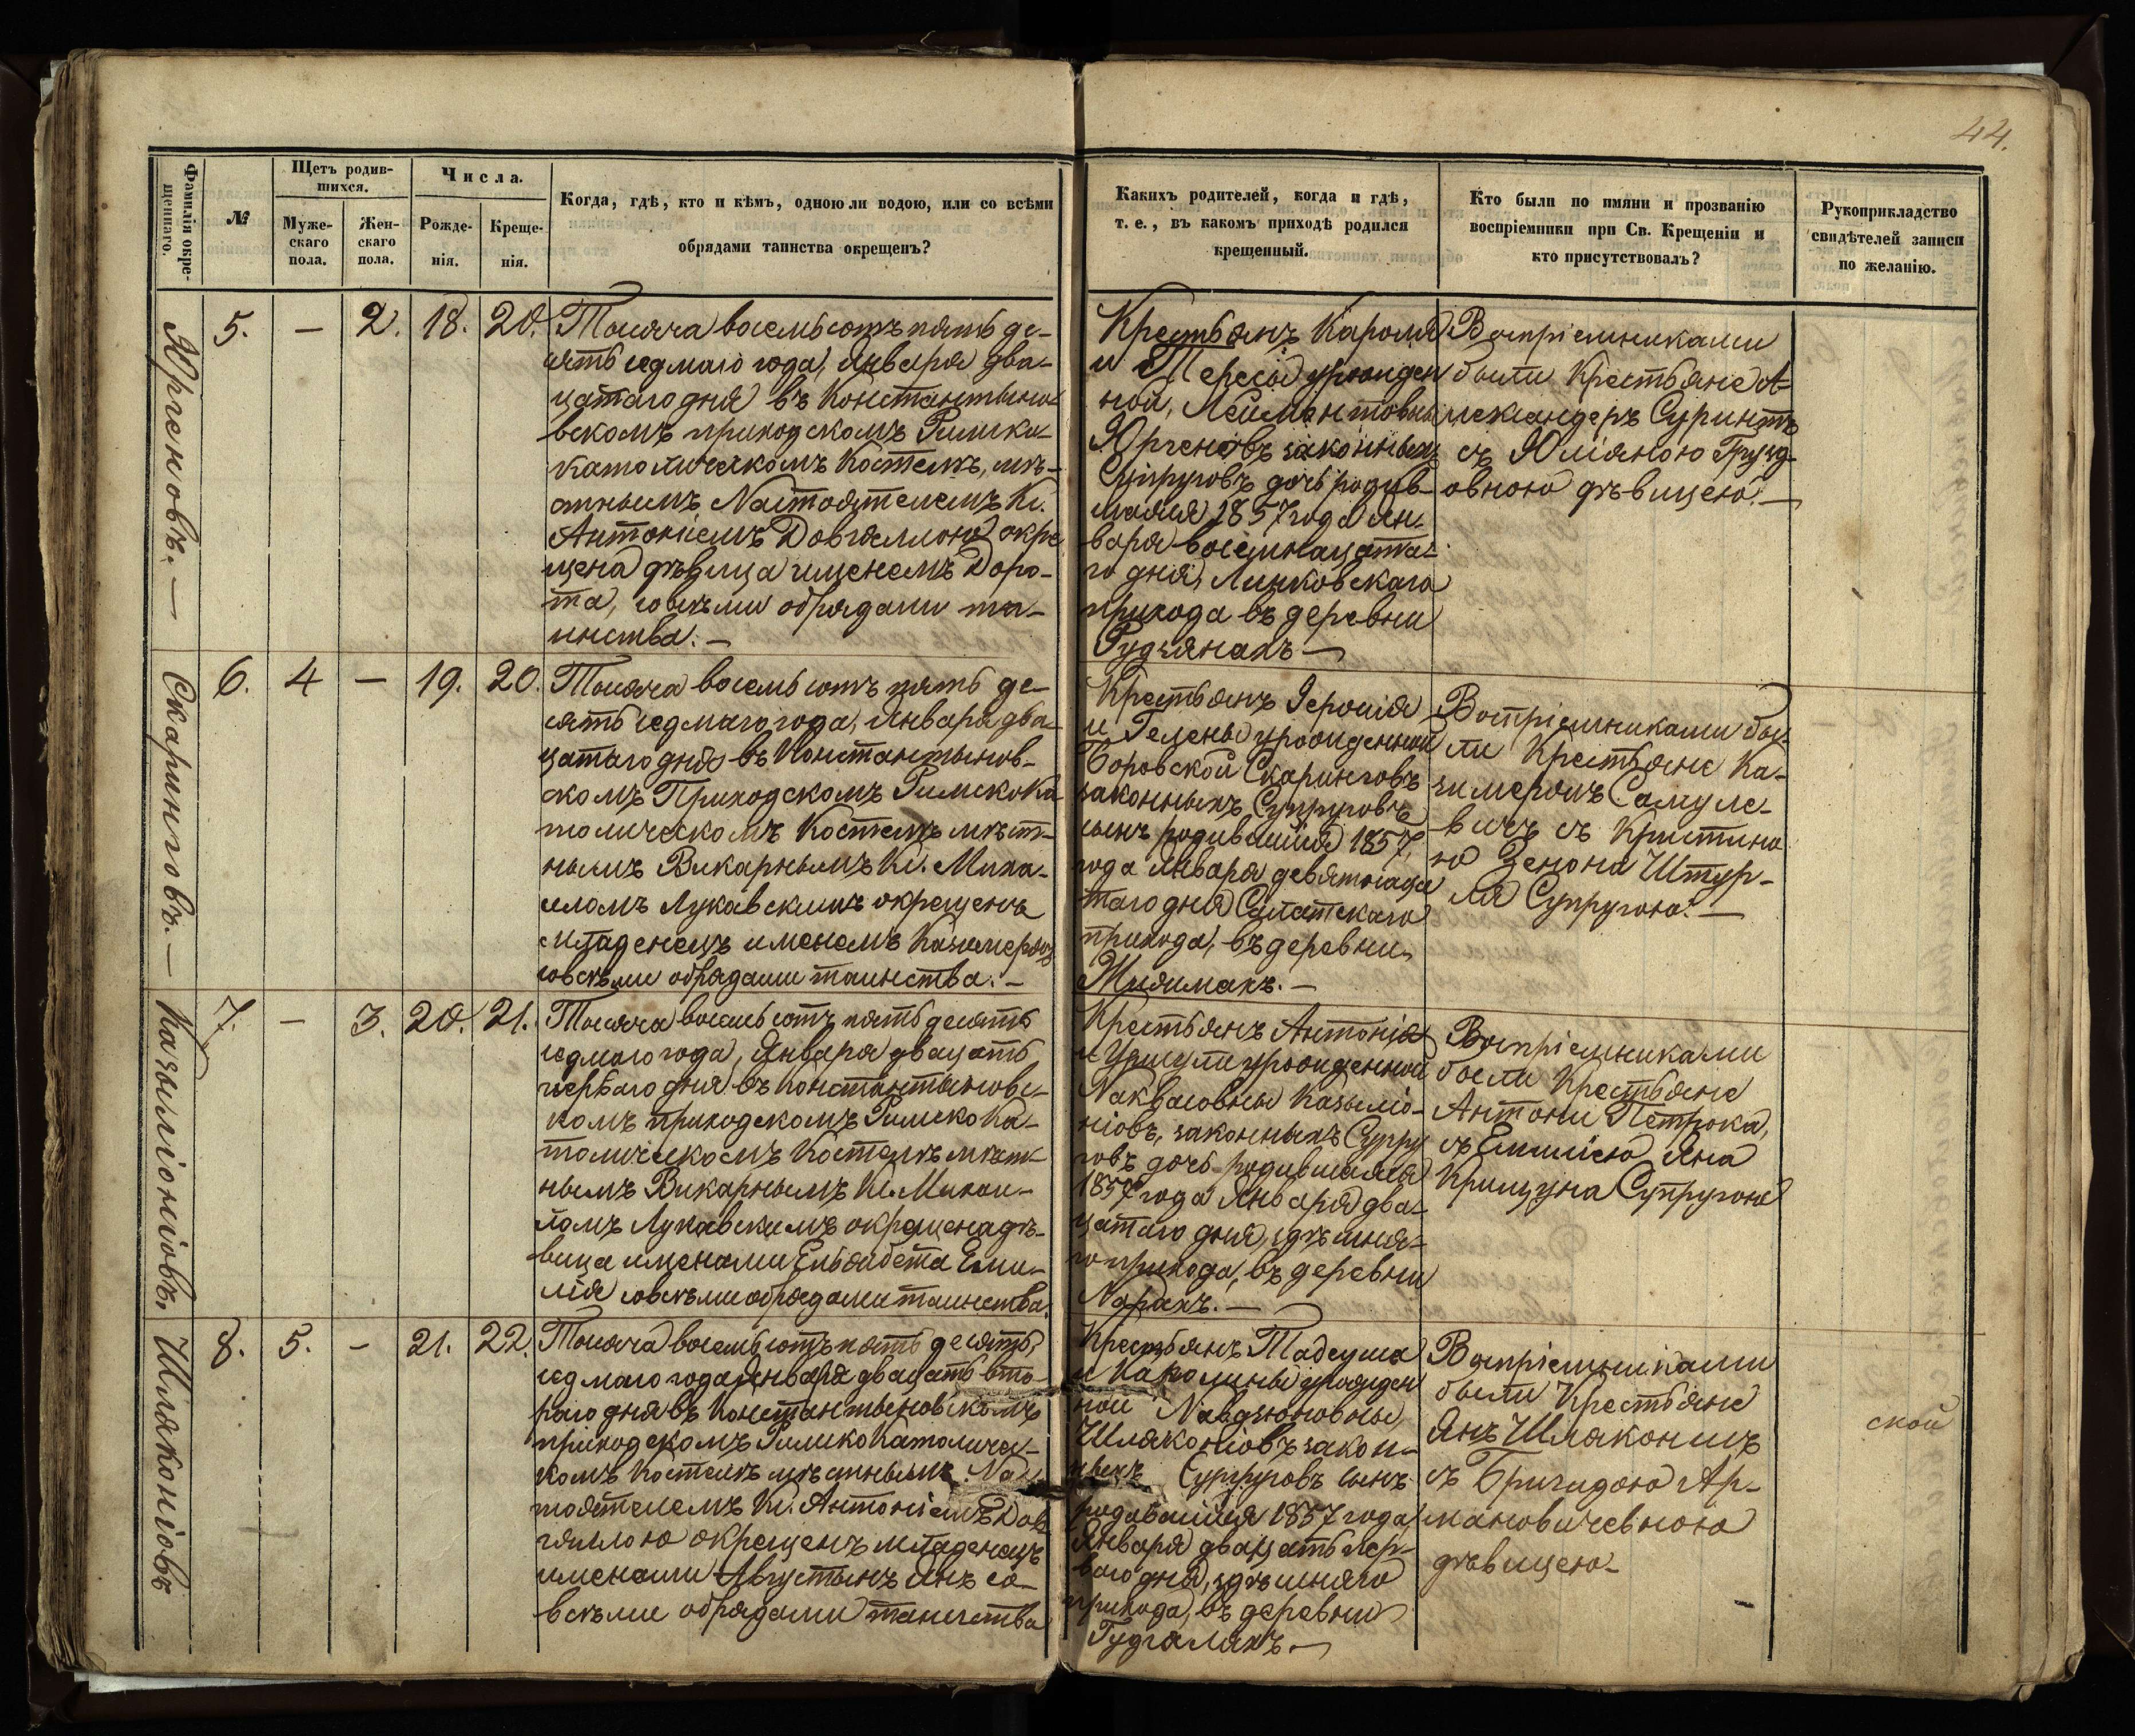 44.
Фамилія окре-
щеннаго.
№
Щетъ родив-
шихся.
Муже-
скаго
пола.
Жен-
скаго
пола.
Числа.
Рожде-
нія.
Креще-
нія.
Когда, гдѣ, кто и кѣмъ, одною ли водою, или со всѣми
обрядами таинства окрещенъ?
Какихъ родителей, когда и гдѣ,
т. е., въ какомъ приходѣ родился
крещенный.
Кто были по имяни и прозванію
воспріемники при Св. Крещеніи и
кто присутствовалъ?
Рукоприкладство
свидѣтелей записи
по желанію.
Юргеновъ. —
5.
—
2.
18.
20.
Тысяча восемьсотъ пять де-
сять седмаго года, Января два-
цатаго дня въ Константыно-
вскомъ приходскомъ Римско-
католическомъ Костелѣ, мѣ-
стнымъ Настоятелемъ Кс.
Антоніемъ Довгялломъ окре
щена дѣвица именемъ Доро-
та, совсѣми обрядами та-
инства. —
Крестьянъ Кароля
и Тересы урожден
ной, Лейментовны
Юргеновъ законныхъ
Супруговъ дочь родив-
шаяся 1857 года Ян-
варя восемнацата-
го дня, Линковскаго
прихода въ деревни
Рудзянахъ —
Воспріемниками
были Крестьяне А-
лександеръ Суринтъ
съ Юліяною Грузд-
овною дѣвицею. —
Скаринговъ. —
6.
4
—
19.
20.
Тысяча восемьсотъ пять де-
сять седмаго года, Января два-
цатаго дня въ Константынов-
скомъ Приходскомъ РимскоКа
толическомъ Костелѣ мѣст-
нымъ Викарнымъ Кс. Миха-
иломъ Лукавскимъ окрещенъ
младенецъ именемъ Казимеръ
совсѣми обрядами таинства. —
Крестьянъ Геронія
и Гелены урожденной
Боровской Скаринговъ
законныхъ Супруговъ
сынъ родившійся 1857
года Января девятнаца
таго дня Салатскаго
прихода, въ деревни
Воспріемниками бы-
ли Крестьяне Ка-
зимеромъ Самуле-
вичъ съ Кристино
ю Зенона Штур-
ля Супругою. —
Казылiонiовъ.
7.
—
3.
20.
21.
Тысяча восемьсотъ пять десять
седмого года, Января двацать
перваго дня въ Константыновс-
комъ приходскомъ РимскоКа-
толическомъ Костелѣ мѣст-
нымъ Викарнымъ Кс. Михаи-
ломъ Лукавскимъ окрещена дѣ-
вица именами Ельзабета Еми-
лія совсѣми обрядами таинства.
Крестьянъ Антонія
и Уршули урожденной
Наквасовны Казыліо-
ніовъ, законныхъ Супру
говъ дочь родившаяся
1857 года Января два-
цатаго дня, здѣшня-
го прихода, въ деревни
Нарахъ. —
Воспріемниками
были Крестьяне
Антони Петрока,
съ Емиліею Яна
Крищуна Супругою
Шляконіовъ
8.
5.
-
21.
22.
Тысяча восемьсотъ пять десять
седмаго года Января двацать вто-
раго дня въ Константыновскомъ
приходскомъ РимскоКатоличес-
комъ Костелѣ мѣстнымъ Нас
тоятелемъ Кс. Антоніемъ Дов
гялломъ окрещенъ младенецъ
именами Августынъ Янъ со-
всѣми обрядами таинства
Крестьянъ Тадеуша
и Каролины урожден
ной
Шляконіовъ закон-
ныхъ Супруговъ сынъ
родившійся 1857 года
Января двацать пер-
ваго дня, здѣшняго
прихода, въ деревни
Гудгаляхъ. —
Воспріемниками
были Крестьяне
Янъ Шляконисъ
съ Бригидою Ар-
мановичевною
дѣвицею-
ской